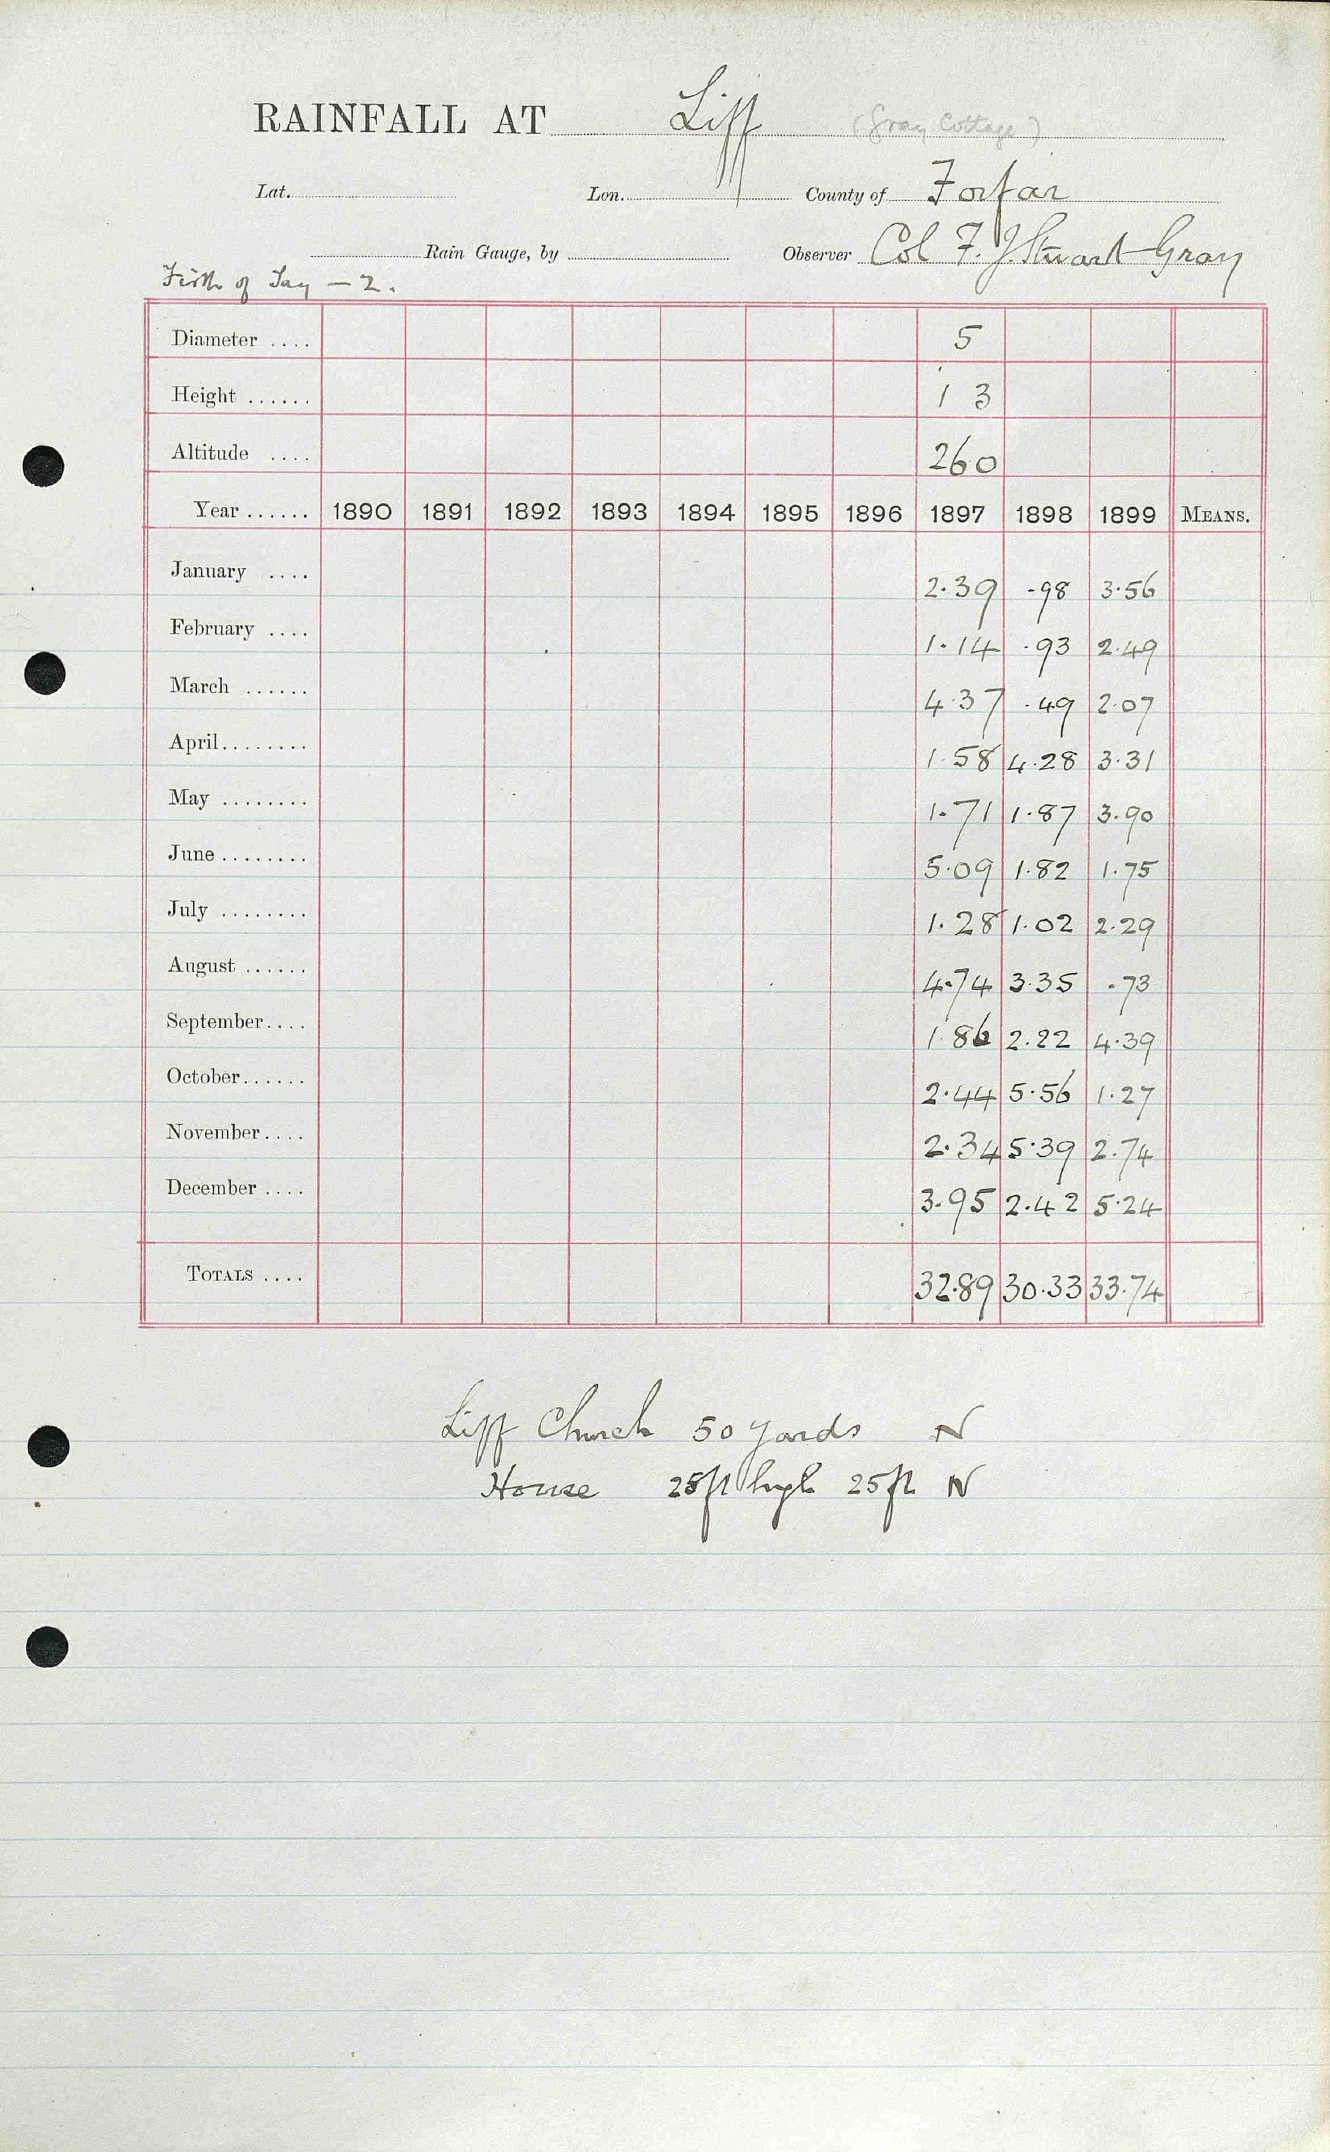 RAINFALL AT Liff (Gray Cottage)
Lat. Lon. County of Forfar
Rain Gauge, by Observer Col F. J. Stuart-Gray
Firth of Tay — 2.
Diameter .... 5
Height ...... 1 3
Altitude .... 260
Year ...... 1890 1891 1892 1893 1894 1895 1896 1897 1898 1899 MEANS.
January .... 2.39 .98 3.56
February .... 1.14 .93 2.49
March ...... 4.37 .49 2.07
April ........ 1.58 4.28 3.31
May ........ 1.71 1.87 3.90
June ........ 5.09 1.82 1.75
July ........ 1.28 1.02 2.29
August ...... 4.74 3.35 .73
September .... 1.86 2.22 4.39
October ...... 2.44 5.56 1.27
November .... 2.34 5.39 2.74
December .... 3.95 2.42 5.24
TOTALS .... 32.89 30.33 33.74
Liff Church 50 yards N
House 25ft high 25ft N